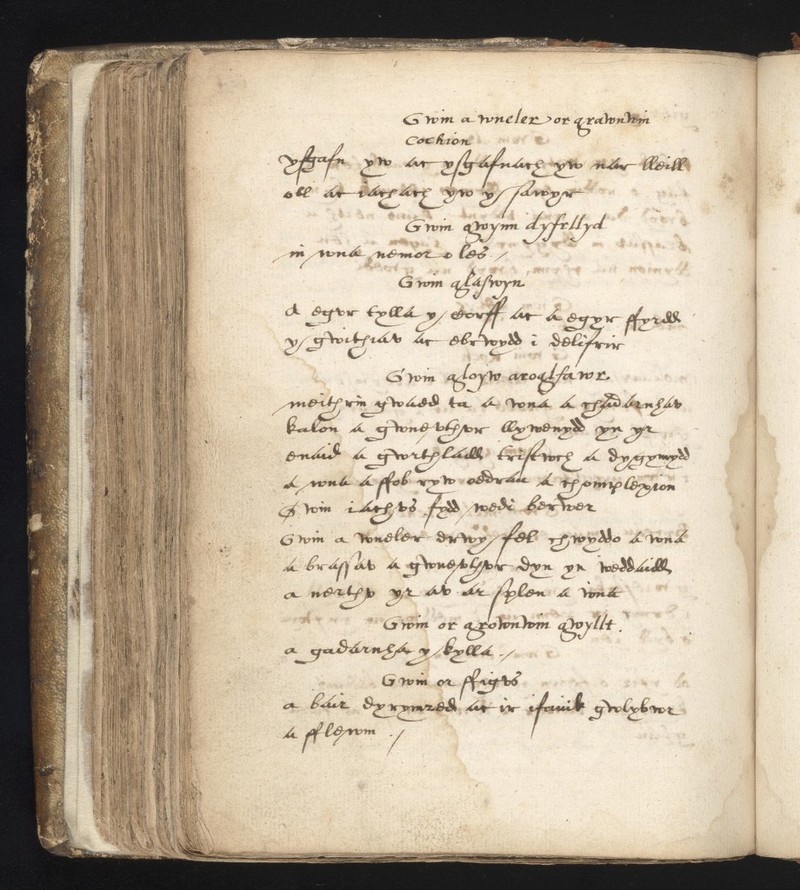 Gwin a wneler or grawnwin
cochion
ysgafn yw ac ysgafnach yw nar lleill
oll ac iachach yw y sawyr
Gwin gwynn dyfrllyd
ni wna nemor o les
Gwin glaswyn
a egyr kylla y corff ac a egyr ffyrdd
y gwithiav ac ebrwydd i delifrir
Gwin gloyw aroglfawr
meithrin gwaed da a wna a chadarnhav
kalon a gwnevthvr llywenydd yn yr
enaid a gwrthladd tristwch a dygymydd
a wna a ffob ryw oddran a chomplexion
Gwin iachvs fydd wedi berwer
Gwin a wneler drwy fel chwyddo a wna
a brassav a gwnevthvr dyn yn weddaidd
a nerthv yr av ar splen a wna
Gwin or grownwin gwyllt.
a gadarnha y kylla
Gwin or ffigvs
a bair dyrymred ac ir gwlybwr
a fflewm